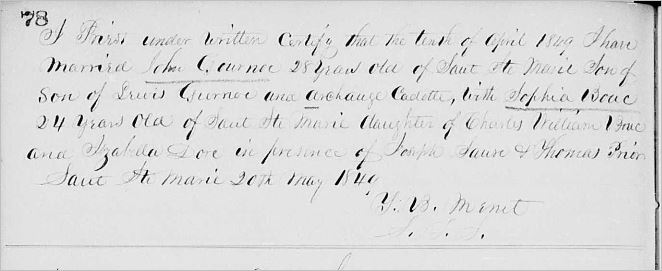 78
I Priest under written Certify that the tenth of April 1849 I have
Married John Gournoe 28 years old of Saut Ste Marie Son of
Son of Lewis Gurnoe and Archange Cadotte, with Sophia Boue
24 Years Old of Saut Ste Marie daughter of Charles William Boue
and Izabela Dore in presence of Joseph Sauve & Thomas Prior
Saut Ste Marie 20th May 1849
J. B. Menet